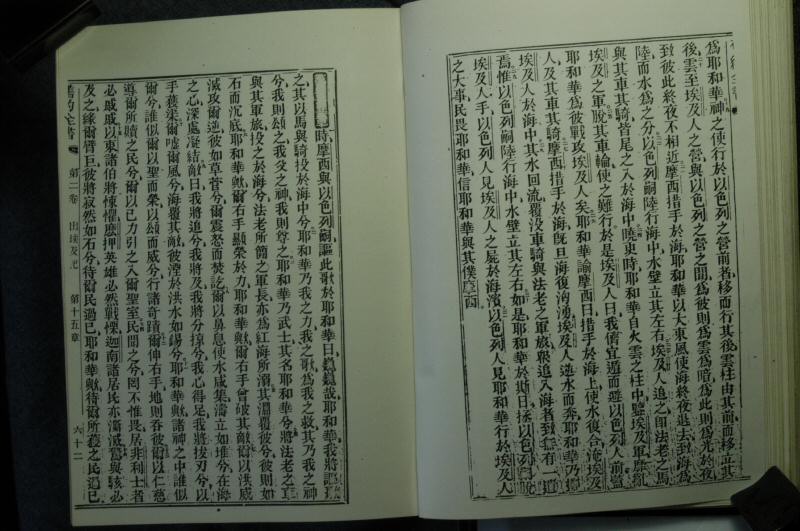 爲耶和華神之使行於以色列之營前者移而行其後雲柱由其前而移立其
後雲至埃及人之營與以色列之營之間爲彼則爲雲爲暗爲此則爲光於夜
致彼此終夜不相近摩西措手於海耶和華以大東風使海終夜退去致海爲
陸而水爲之分以色列嗣陸行海中水壁立其左右埃及人追之卽法老之馬
與其車其騎皆尾之入於海中曉更時耶和華自火雲之柱中鑒埃及軍
埃及之軍脫其車輪使之難行於是埃及人曰我儕宜避以色列人前蓋
耶和華爲彼戰攻埃及人矣耶和華諭摩西曰措手於海上使水復合淹埃及
人及其車其騎摩西措手於海旣旦海復洶湧埃及人逃水而奔耶和華乃擲
埃及人於海中其水回流覆沒車騎與法老之軍旅衆追入海者致有一遺
焉惟以色列嗣陸行海中水壁立其左右如是耶和華於斯日拯以色列嗣脫
埃及人手以色列人見埃及人之屍於海濱以色列人見耶和華行於埃及人
之大事民畏耶和華信耶和華與其僕摩西
時摩西與以色列嗣謳此歌於耶和華曰巍巍哉耶和華我將謳
之其以馬與騎投於海中兮耶和華乃我之力我之歌爲我之救其乃我之神
兮我則頌之我父之神我則尊之耶和華乃武士其名耶和華兮將法老之車
與其軍旅投之於海兮法老所簡之軍長亦爲紅海所溺其淵覆彼兮彼則如
石而沉底耶和華歟爾右手顯榮於力耶和華歟爾右手曾破其敵爾以洪威
滅攻爾逆彼如草菅兮爾震怒而焚訖爾以鼻息使水咸集濤立如堆兮在海
之心深處凝結敵曰我將追兮我將及我將分掠兮我心得足我將拔刃兮以
手獲渠爾噓爾風兮海覆其敵彼湮於洪水如錫兮耶和華歟諸神之中誰似
爾兮誰似爾以聖而榮以頌而威兮行諸奇蹟爾伸右手地則吞彼爾以仁慈
導爾所贖之民兮爾以己力引之入爾聖室民聞之兮罔不惟畏居非利士者
必戚戚以東諸伯將悚懼摩押英雄必然戰慄迦南諸居民亦消滅驚與駭必
及之緣爾臂巨彼將寂然如石兮待爾民過已耶和華歟待爾所獲之民過已
舊約全書 第二卷 出埃及記 第十五章 六十二